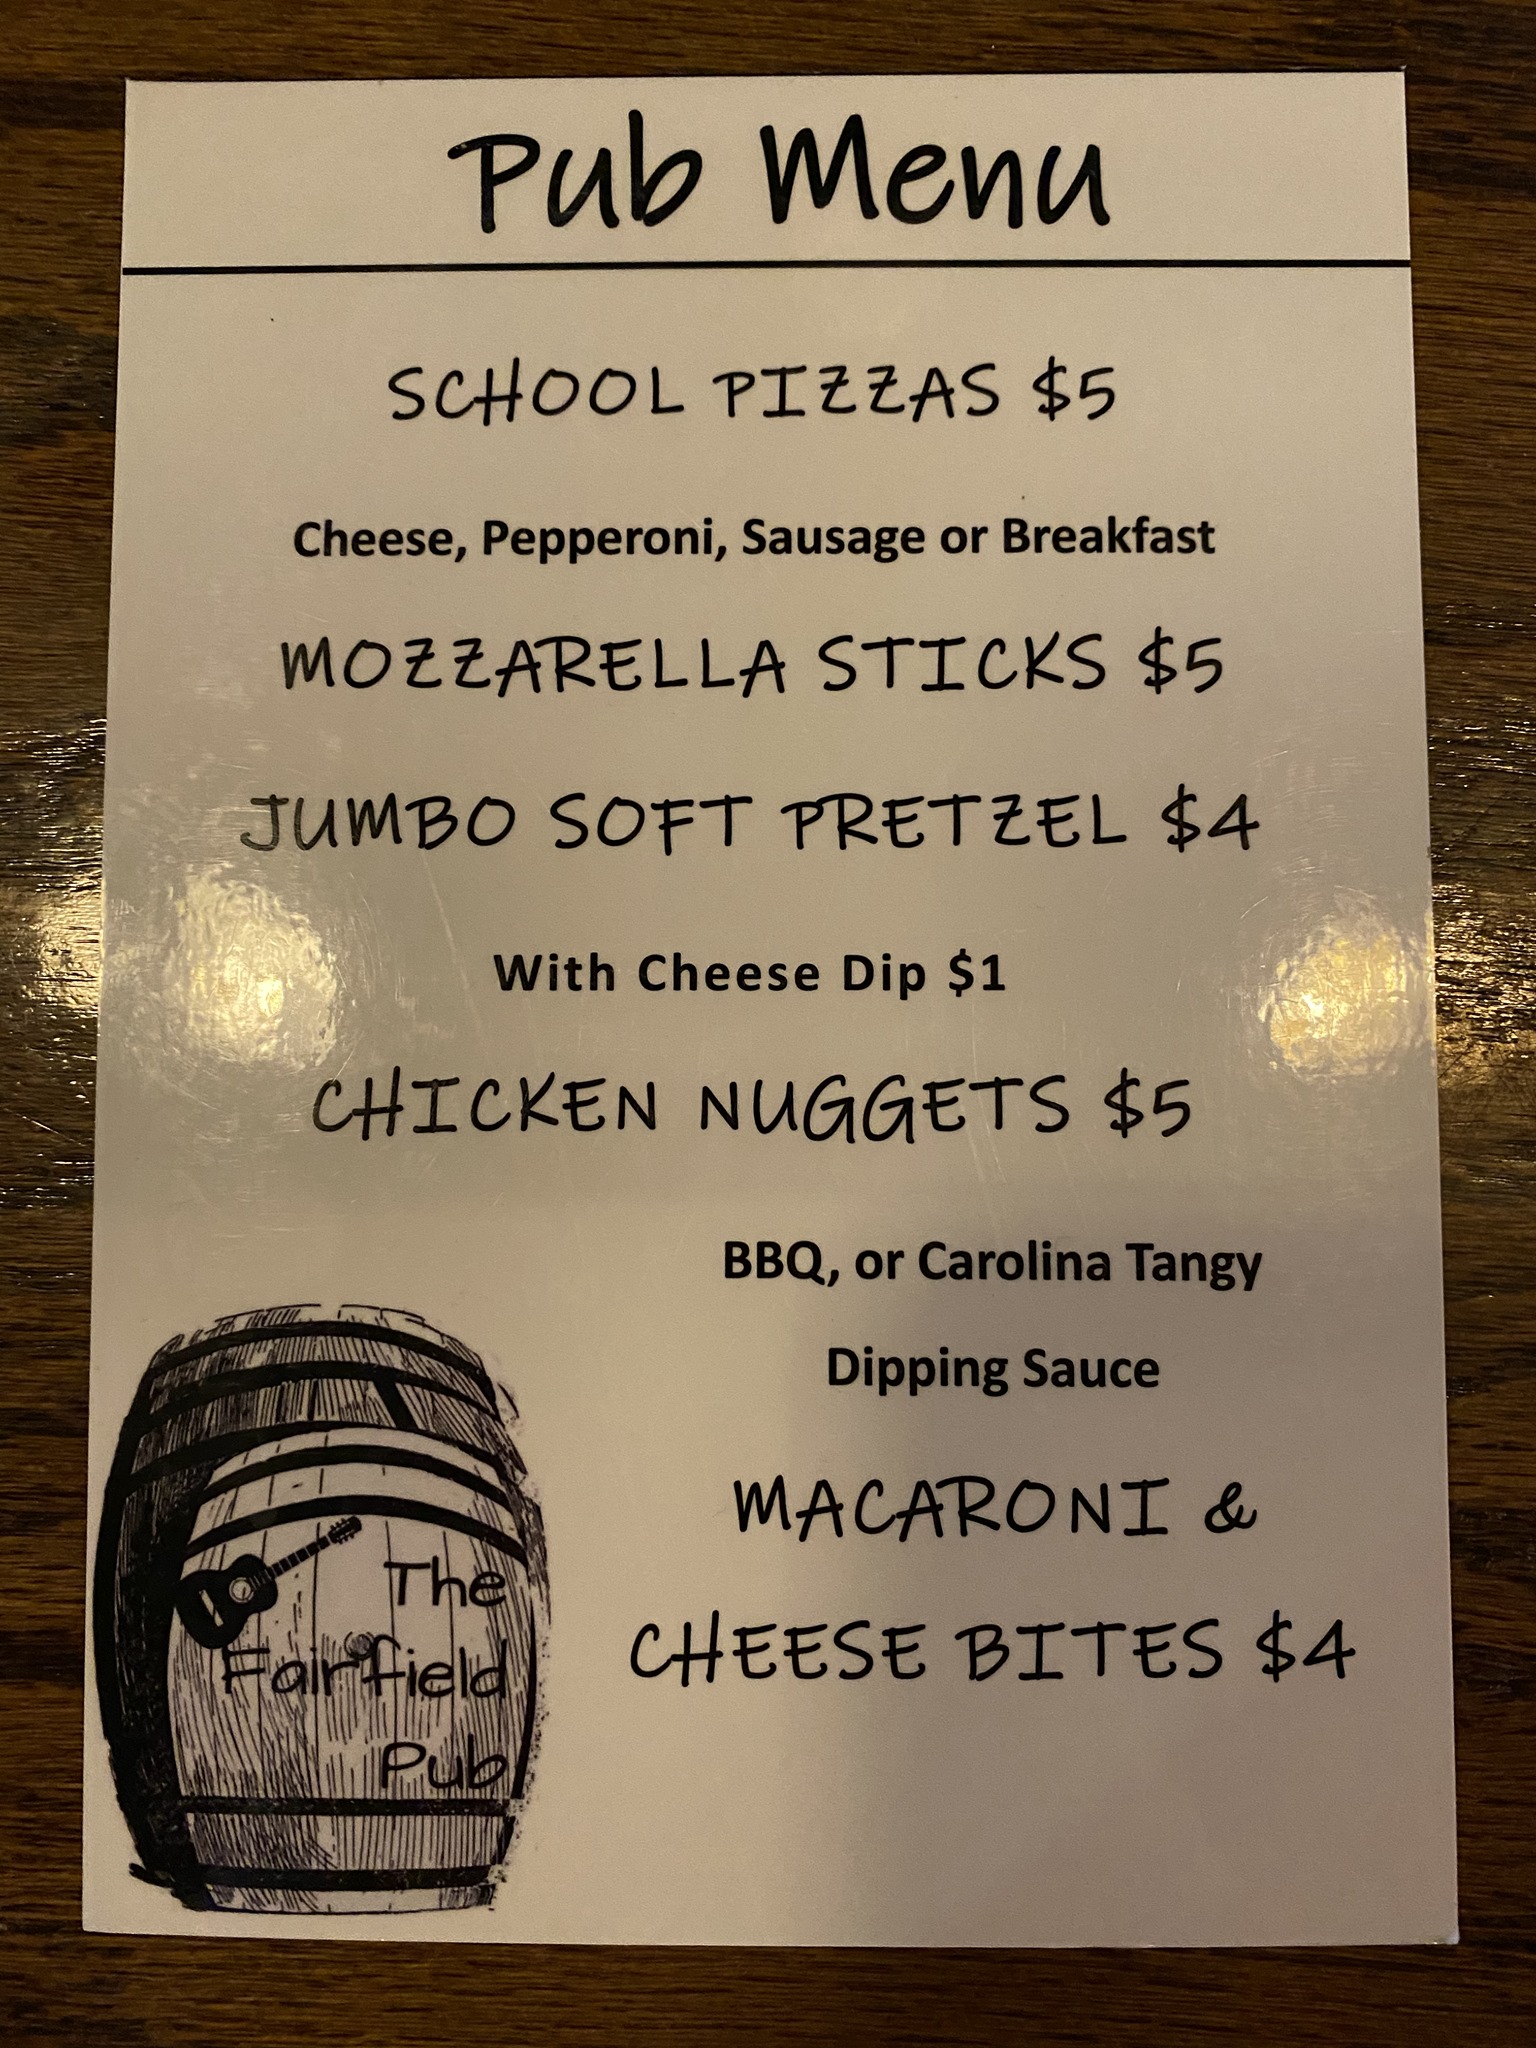 Pub Menu
SCHOOL PIZZAS $5
Cheese, Pepperoni, Sausage or Breakfast
MOZZARELLA STICKS $5
JUMBO SOFT PRETZEL $4
With Cheese Dip $1
CHICKEN NUGGETS $5
BBQ, or Carolina Tangy
Dipping Sauce
MACARONI &
CHEESE BITES $4
The
Fairfield
Pub